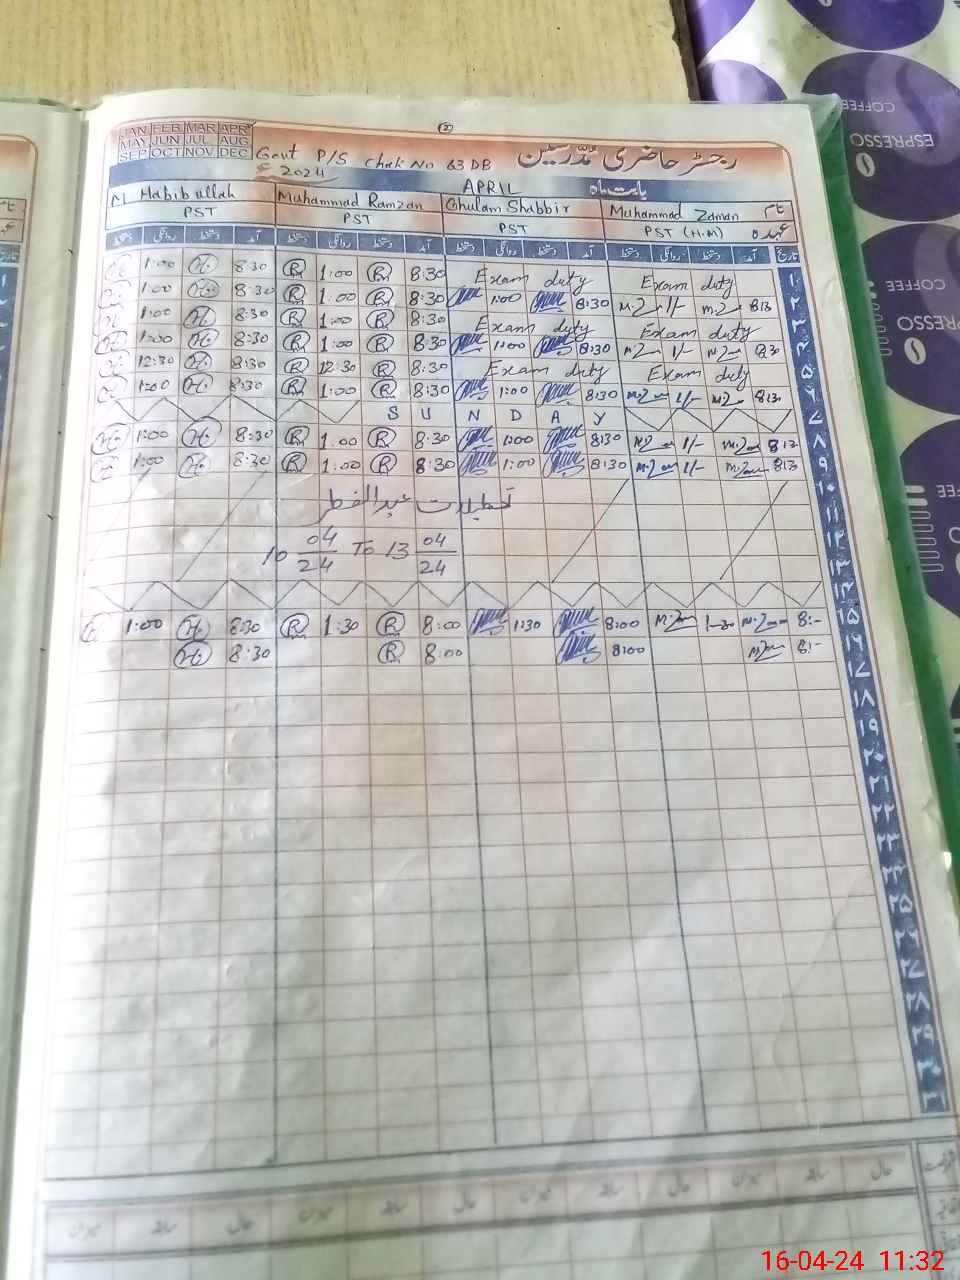 (2)
JAN FEB MAR APR
MAY JUN JUL AUG
SEP OCT NOV DEC
Govt P/S Chak No 63 DB رجسٹر حاضری مدرسین
2024 APRIL بابت ماہ
M Habib ullah Muhammad Ramzan Ghulam Shabbir Muhammad Zaman نام
PST PST PST PST (H.M) عہدہ
دستخط روانگی دستخط آمد دستخط روانگی دستخط آمد دستخط روانگی دستخط آمد دستخط روانگی دستخط آمد تاریخ
1:00 H. 8:30 R 1:00 R 8:30 Exam duty Exam duty ۱
1:00 H. 8:30 R 1:00 R 8:30 1:00 8:30 1/- 8:30 ۲
1:00 H. 8:30 R 1:00 R 8:30 Exam duty Exam duty ۳
1:00 H. 8:30 R 1:00 R 8:30 1:00 8:30 1/- 8:30 ۴
12:30 H. 8:30 R 12:30 R 8:30 Exam duty Exam duty ۵
1:00 H. 8:30 R 1:00 R 8:30 1:00 8:30 1/- 8:30 ۶
S U N D A Y ۷
H. 1:00 H. 8:30 R 1:00 R 8:30 1:00 8:30 1/- 8:30 ۸
1:00 H. 8:30 R 1:00 R 8:30 1:00 8:30 1/- 8:30 ۹
تعطیلات عیدالفطر ۱۰
۱۱
10 04/24 To 13 04/24 ۱۲
۱۳
۱۴
1:00 H. 8:30 R 1:30 R 8:00 1:30 8:00 1-30 8:- ۱۵
H. 8:30 R 8:00 8:00 8:- ۱۶
۱۷
۱۸
۱۹
۲۰
۲۱
۲۲
۲۳
۲۴
۲۵
۲۶
۲۷
۲۸
۲۹
۳۰
۳۱
میزان سابقہ حال میزان سابقہ حال میزان سابقہ حال میزان سابقہ حال
COFFEE
ESPRESSO
COFFEE
ESPRESSO
COFFEE
16-04-24 11:32